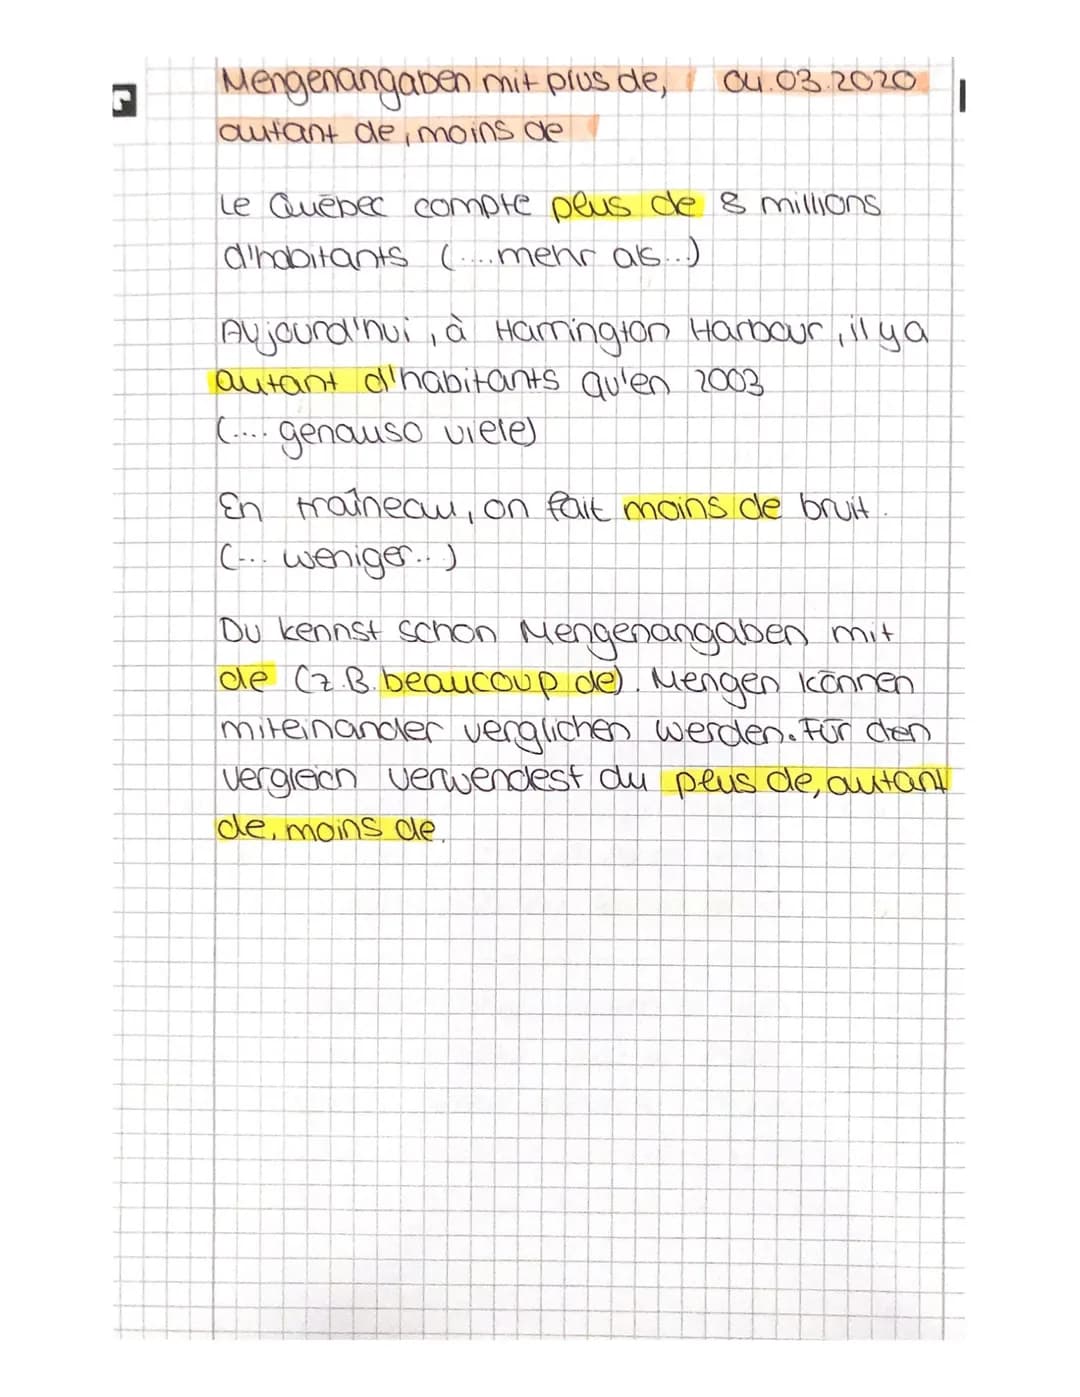 Mengenangaben mit plus de, 04.03.2020
autant de, moins de
Le Québec compte plus de 8 millions
d'habitants (....mehr als...)
Aujourd'hui, à Harrington Harbour, il y a
autant d'habitants qu'en 2003
(.... genauso viele)
En traîneau, on fait moins de bruit.
(... weniger...)
Du kennst schon Mengenangaben mit
de (z.B. beaucoup de). Mengen können
miteinander verglichen werden. Für den
vergleich verwendest du plus de, autant
de, moins de.